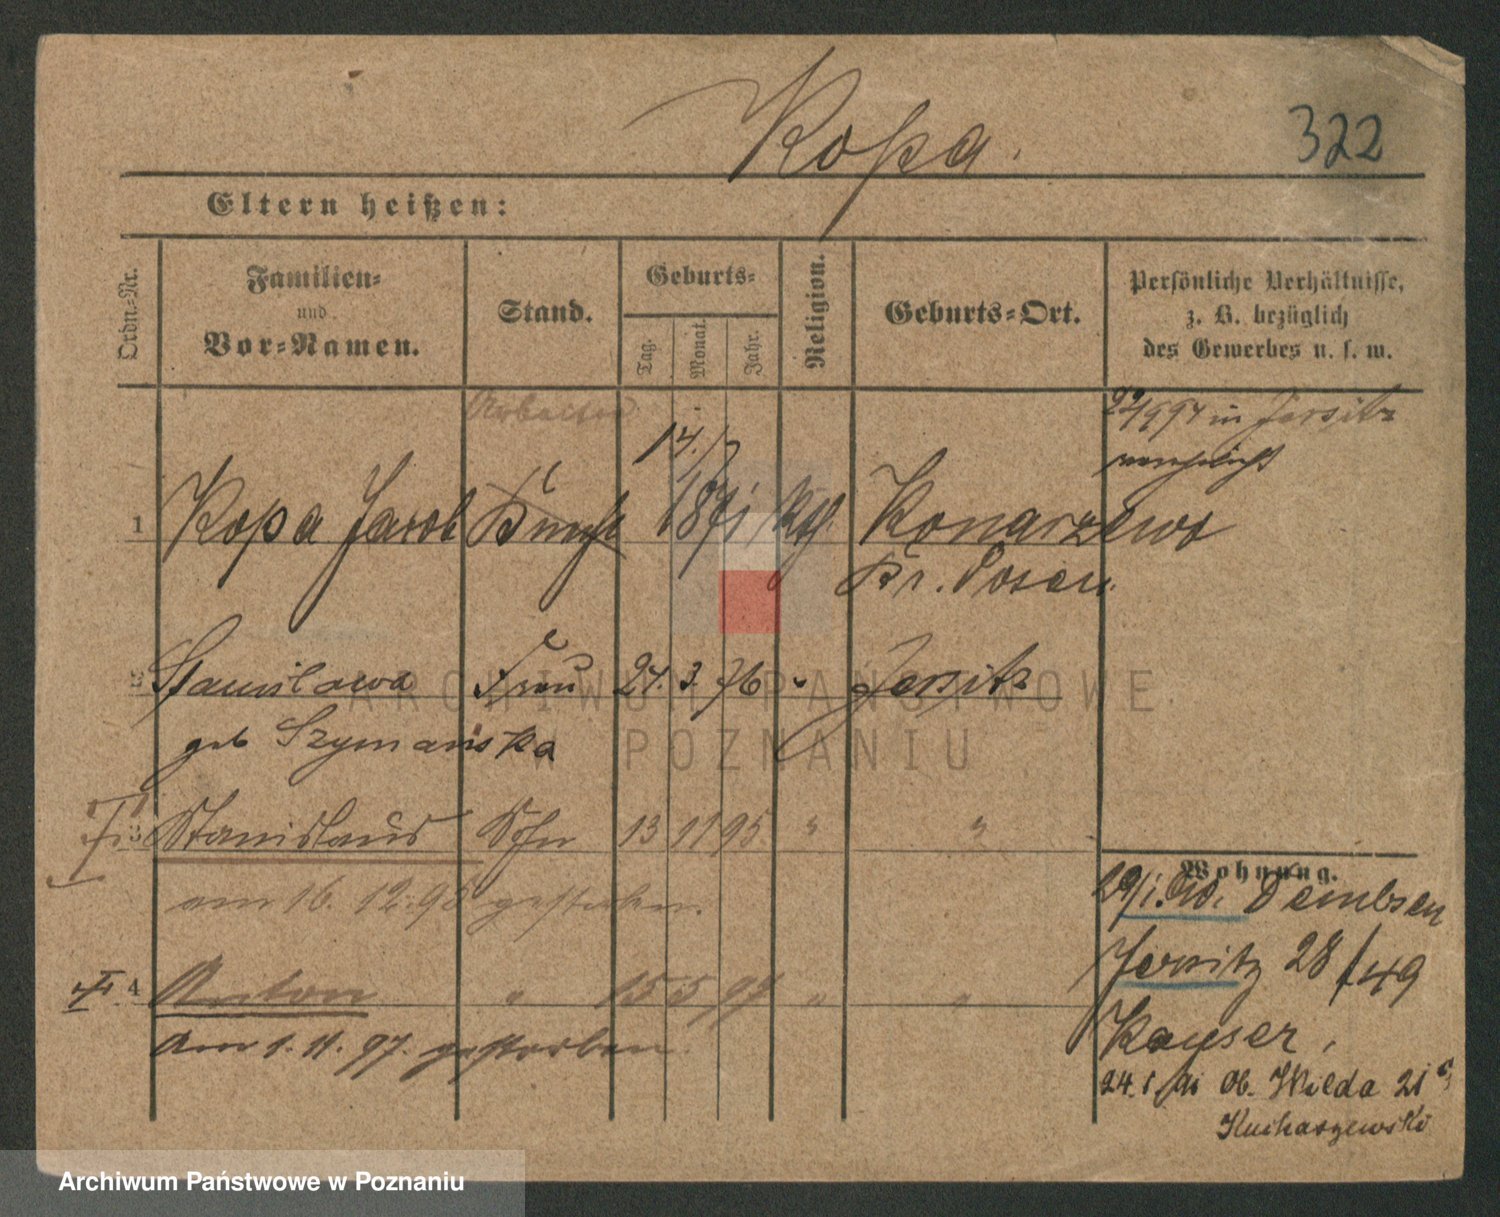 Kopa.
322
Eltern heißen:
Ordn.-Nr.
Familien-
und
Vor-Namen.
Stand.
Geburts-
Tag.
Monat.
Jahr.
Religion.
Geburts-Ort.
Persönliche Verhältnisse,
z. B. bezüglich
des Gewerbes u. s. w.
Arbeiter
in Jersitz
verehelicht
14.
1 Kopa Jacob Knecht 1871 ktḥ. Konarzewo
Kr. Posen.
2 Stanislawa Frau 24. 3. 76 " Jersitz
geb Szymańska
3 Stanislaus Sohn 13 11 95. " "
am 16. 12. 95 gestorben.
Wohnung.
Dembsen
Jersitz 28/49
4 Anton " 15 5 97 " "
Kayser,
am 1. 11. 97. gestorben.
24. Ob. Wilda 21
Kucharzewski
ARCHIWUM PAŃSTWOWE
W POZNANIU
Archiwum Państwowe w Poznaniu